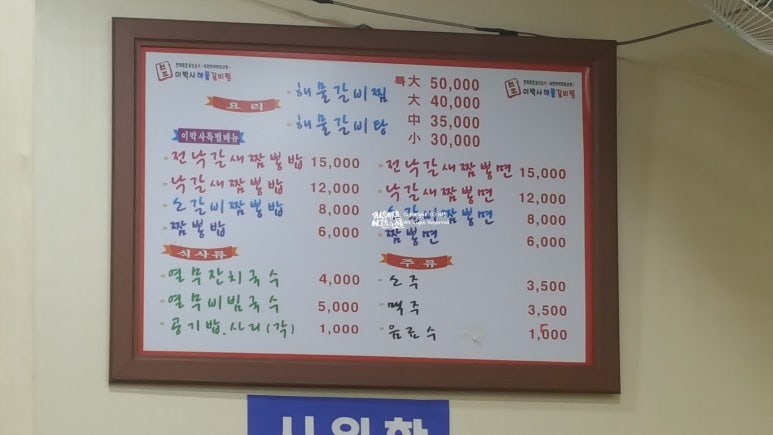 원조
이박사 해물갈비찜
원조
이박사 해물갈비찜
요리
해물갈비찜
해물갈비탕
특大 50,000
大 40,000
中 35,000
小 30,000
이박사특별메뉴
전낙갈새짬뽕밥 15,000
낙갈새짬뽕밥 12,000
소갈비짬뽕밥 8,000
짬뽕밥 6,000
전낙갈새짬뽕면 15,000
낙갈새짬뽕면 12,000
소갈비짬뽕면 8,000
짬뽕면 6,000
식사류
열무잔치국수 4,000
열무비빔국수 5,000
공기밥.사리(각) 1,000
주류
소주 3,500
맥주 3,500
음료수 1,500